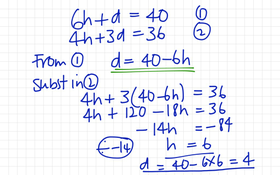 6h + d = 40 ①
4h + 3d = 36 ②
From ① d = 40 - 6h
Subst in ②
4h + 3(40 - 6h) = 36
4h + 120 - 18h = 36
-14h = -84
÷-14 h = 6
d = 40 - 6×6 = 4